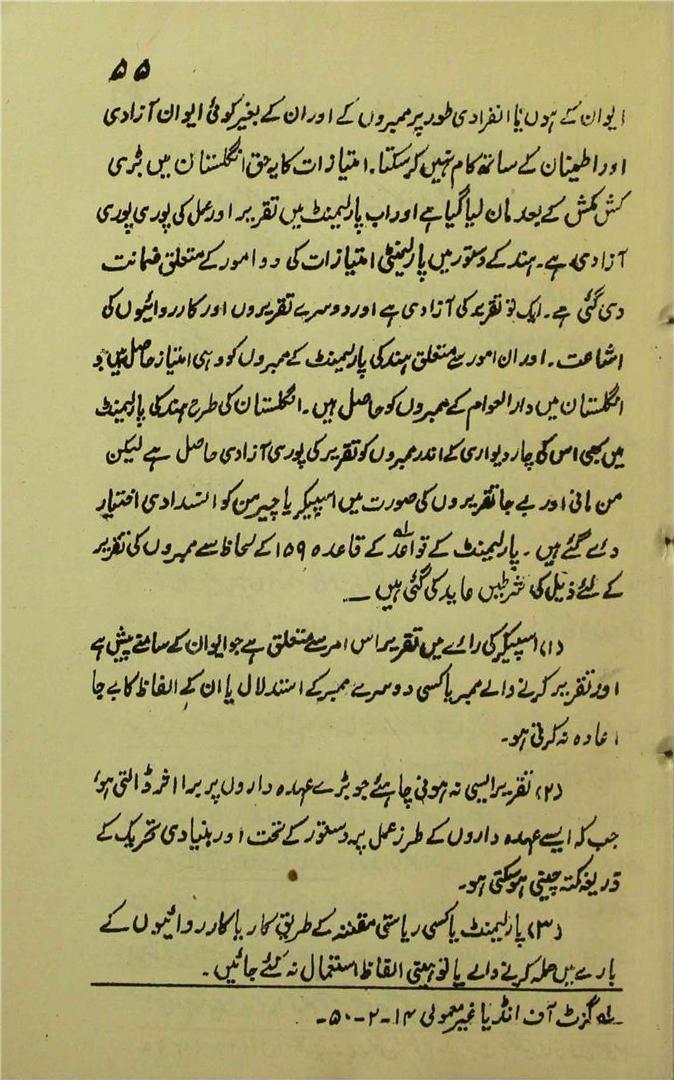 ۵۵
ایوان کے ہوں یا انفرادی طور پر ممبروں کے اور ان کے بغیر کوئی ایوان آزادی
اور اطینان کے ساتھ کام نہیں کر سکتا۔ امتیازات کا یہ حق انگلستان میں بڑی
کش مکش کے بعد مان لیا گیا ہے اور اب پارلیمنٹ میں تقریر اور عمل کی پوری پوری
آزادی ہے۔ ہند کے دستور میں پارلیمنٹی امتیازات کی دو امور کے متعلق ضمانت
دی گئی ہے۔ ایک تو تقریر کی آزادی ہے اور دوسرے تقریروں اور کارروائیوں کی
اشاعت۔ اور ان امور سے متعلق ہند کی پارلیمنٹ کے ممبروں کو وہی امتیاز حاصل ہیں جو
انگلستان میں دارالعوام کے ممبروں کو حاصل ہیں۔ انگلستان کی طرح ہند کی پارلیمنٹ
میں بھی اس کی چار دیواری کے اندر ممبروں کو تقریر کی پوری آزادی حاصل ہے لیکن
من مانی اور بے جا تقریروں کی صورت میں اسپیکر یا چیرمن کو انسدادی اختیار
دئے گئے ہیں۔ پارلیمنٹ کے قواعد لہ کے قاعدہ ۱۵۹ کے لحاظ سے ممبروں کی تقریر
کے لئے ذیل کی شرطیں عاید کی گئی ہیں ــ
(۱) اسپیکر کی رائے میں تقریر اس امر سے متعلق ہے جو ایوان کے سامنے پیش ہے
اور تقریر کرنے والے ممبر یا کسی دوسرے ممبر کے استدلال یا ان کے الفاظ کا بے جا
اعادہ نہ کرتی ہو۔
(۲) تقریر ایسی نہ ہونی چاہئے جو بڑے عہدہ داروں پر برا اثر ڈالتی ہو،
جب کہ ایسے عہدہ داروں کے طرز عمل پر دستور کے تحت اور بنیادی تحریک کے
ذریعہ نکتہ چینی ہو سکتی ہو۔
(۳) پارلیمنٹ یا کسی ریاستی مقننہ کے طریق کار یا کارروائیوں کے
بارے میں حملہ کرنے والے یا توہینی الفاظ استعمال نہ کئے جائیں۔
لہ گزٹ آف انڈیا غیر معمولی ۱۴-۲-۵۰-